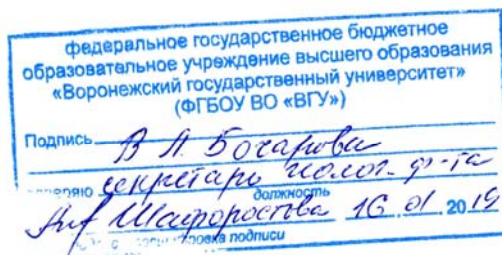 федеральное государственное бюджетное
образовательное учреждение высшего образования
«Воронежский государственный университет»
(ФГБОУ ВО «ВГУ»)
Подпись В Л. Бочарова
секретарь геолог. ф-та
должность
16 01 2019
подписи